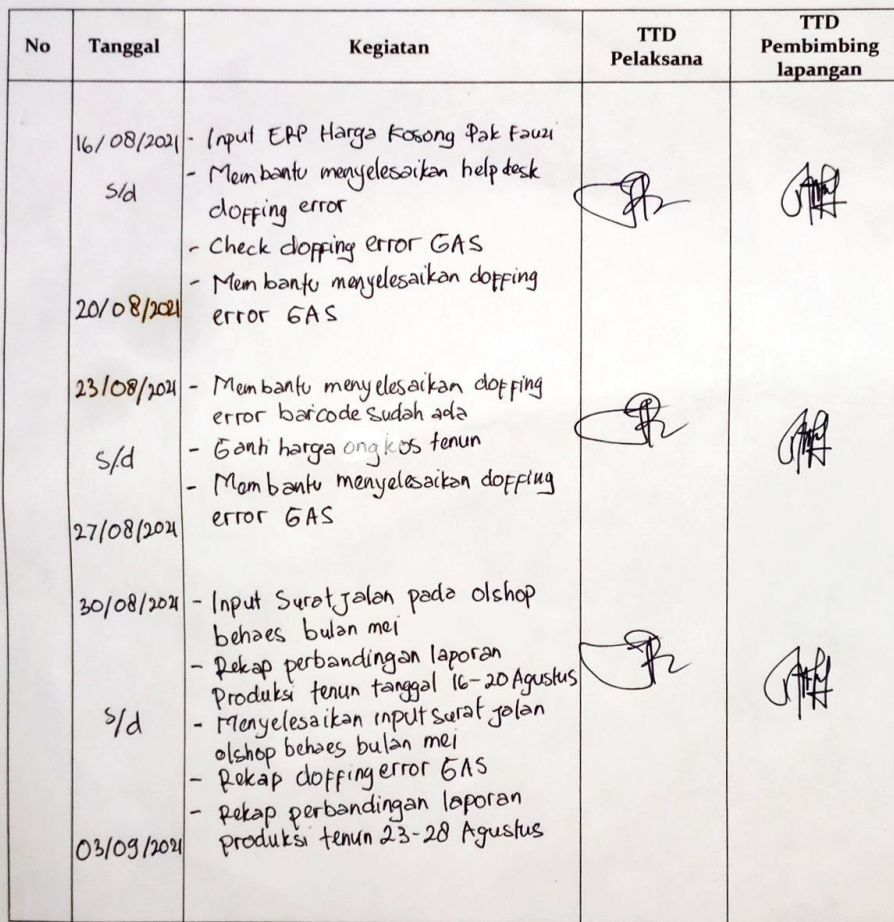 No Tanggal Kegiatan TTD Pelaksana TTD Pembimbing lapangan
16/08/2021 - Input ERP Harga Kosong Pak Fauzi
s/d - Membantu menyelesaikan helpdesk
doffing error
- Check doffing error GAS
- Membantu menyelesaikan doffing
20/08/2021 error GAS
23/08/2021 - Membantu menyelesaikan doffing
error barcode sudah ada
s/d - Ganti harga ongkos tenun
- Membantu menyelesaikan doffing
27/08/2021 error GAS
30/08/2021 - Input Surat jalan pada olshop
behaes bulan mei
- Rekap perbandingan laporan
Produksi tenun tanggal 16-20 Agustus
s/d - Menyelesaikan input surat jalan
olshop behaes bulan mei
- Rekap doffing error GAS
- Rekap perbandingan laporan
03/09/2021 produksi tenun 23-28 Agustus